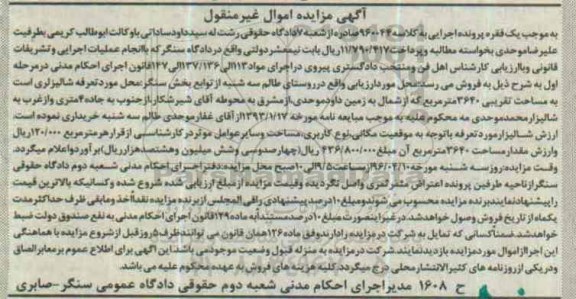 آگهی مزایده اموال غیرمنقول
به موجب یک فقره پرونده اجرایی به کلاسه ۹۶۰۰۴۴ صادره از شعبه ۷ دادگاه حقوقی رشت له سید داود ساداتی با وکالت ابوطالب کریمی بطرفیت
علیرضا موحدی بخواسته مطالبه و پرداخت ۱۱/۷۹۰/۴۱۷ ریال بابت نیمعشر دولتی واقع در دادگاه سنگر که با انجام عملیات اجرایی و تشریفات
قانونی و با ارزیابی کارشناس اهل فن و منتخب دادگستری پیروی در اجرای مواد ۱۱۳ الی ۱۳۶/ ۱۳۷ الی ۱۴۷ قانون اجرای احکام مدنی در مرحله
اول به شرح ذیل به فروش می رسد: محل مورد ارزیابی واقع در روستای طالم سه شنبه از توابع بخش سنگر: محل مورد تعرفه شالیزاری است
به مساحت تقریبی ۳۶۴۰ مترمربع که از شمال به زمین داود موحدی، از مشرق به محوطه آقای شیرشکار، از جنوب به جاده ۴ متری و از غرب به
شالیزار محمد موحدی مه محکوم علیه به موجب مبایعه نامه مورخه ۱۳۹۳/۱/۱۷ از آقای غفار موحدی طالم سه شنبه خریداری نموده است.
ارزش شالیزار مورد تعرفه با توجه به موقعیت مکانی، نوع کاربری، مساحت و سایر عوامل موثر در کارشناسی از قرار هر مترمربع ۱۲۰/۰۰۰ ریال
و ارزش مقدار مساحت ۳۶۴۰ مترمربع آن مبلغ ۴۳۶/۸۰۰/۰۰۰ ریال (چهارصد و سی و شش میلیون و هشتصد هزار ریال) برآورد و اعلام میگردد.
وقت مزایده: روز سه شنبه مورخه ۹۶/۰۴/۱۰ از ساعت ۹/۵ الی ۱۰ صبح محل مزایده دفتر اجرای احکام مدنی شعبه دوم دادگاه حقوقی
سنگر از ناحیه طرفین پرونده اعتراض مثمر ثمری واصل نگردیده و قیمت مزایده از مبلغ ارزیابی شده شروع شده و کسانیکه بالاترین قیمت
را پیشنهاد نمایند برنده مزایده محسوب می شوند و مبلغ ۱۰ درصد پیشنهادی را فی المجلس از برنده مزایده نقداً اخذ و مابقی ظرف حداکثر مدت
یکماه از تاریخ فروش وصول خواهد شد. در غیر اینصورت مبلغ ۱۰ درصد مستنداً به ماده ۱۲۹ قانون اجرای احکام مدنی به نفع صندوق دولت ضبط
خواهد شد. ضمناً کسانی که تمایل به شرکت در مزایده را دارند وفق ماده ۱۲۶ همان قانون می توانند ظرف ۵ روز قبل از شروع مزایده با هماهنگی
این اجرا از اموال مورد مزایده بازدید نمایند. شرکت در مزایده به منزله قبول وضعیت موجود می باشد. این آگهی برای اطلاع عموم بر معابر الصاق
و در یکی از روزنامه های کثیرالانتشار محلی درج میگردد. کلیه هزینه های فروش به عهده محکوم علیه می باشد.
ح ۱۶۰۸ مدیر اجرای احکام مدنی شعبه دوم حقوقی دادگاه عمومی سنگر- صابری